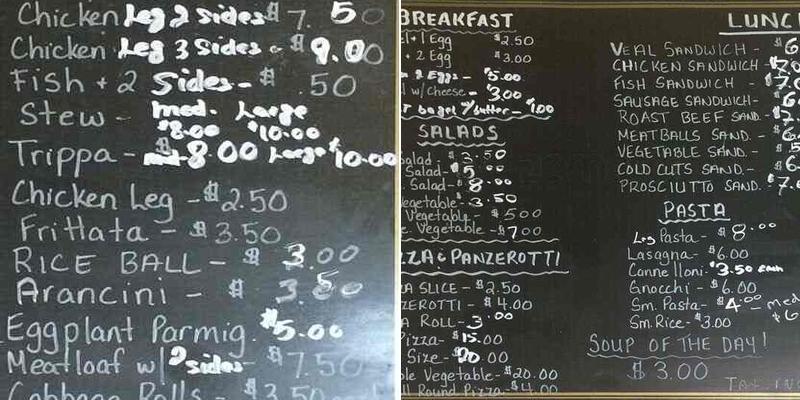 Chicken Leg 2 sides $7.50
Chicken Leg 3 Sides - $9.00
Fish + 2 Sides - $ .50
Stew - med. Large
$8.00 $10.00
Trippa - med $8.00 Large $10.00
Chicken Leg - $2.50
Frittata - $3.50
RICE BALL - $ 3.00
Arancini - $ 3.50
Eggplant Parmig. $5.00
Meatloaf w/ 2 sides $7.50
Cabbage Rolls - $3.50
BREAKFAST
+ 1 Egg $2.50
+ 2 Egg $3.00
2 Eggs - $5.00
w/ Cheese - $3.00
bagel w/butter - $1.00
SALADS
Salad - $3.50
Salad - $5.00
Salad - $8.00
Vegetable - $3.50
Vegetable - $5.00
Vegetable - $7.00
ZZA & PANZEROTTI
ZA SLICE - $2.50
ZEROTTI - $4.00
A ROLL - 3.00
Pizza - $15.00
Size - $20.00
Vegetable - $20.00
Round Pizza - $4.00
LUNC
VEAL SANDWICH - $6
CHICKEN SANDWICH - $7.0
FISH SANDWICH - $7.
SAUSAGE SANDWICH - $6
ROAST BEEF SAND. - $7
MEATBALLS SAND. - $6
VEGETABLE SAND. - $5
COLD CUTS SAND. - $6
PROSCIUTTO SAND. $7.
PASTA
Lrg Pasta - $8.00
Lasagna - $6.00
Cannelloni - $3.50 each
Gnocchi - $6.00
Sm. Pasta - $4.00 - med
$6
Sm. Rice - $3.00
SOUP OF THE DAY!
$3.00
TAX INC